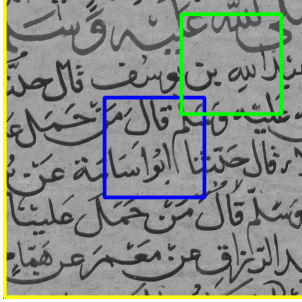 الله عليه وسا
عبد الله بن يوسف قال حدثنا
عليه وسلم قال من حمل
قال حدثنا ابو اسامة عن
وسلم قال من حمل علينا
عبد الرزاق عن معمر عن همام